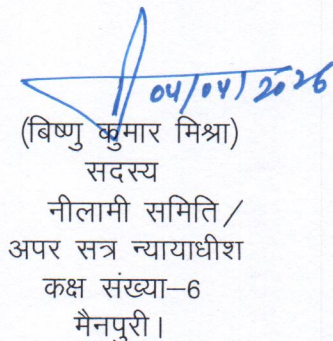 04/04/2026
(बिष्णु कुमार मिश्रा)
सदस्य
नीलामी समिति /
अपर सत्र न्यायाधीश
कक्ष संख्या–6
मैनपुरी।